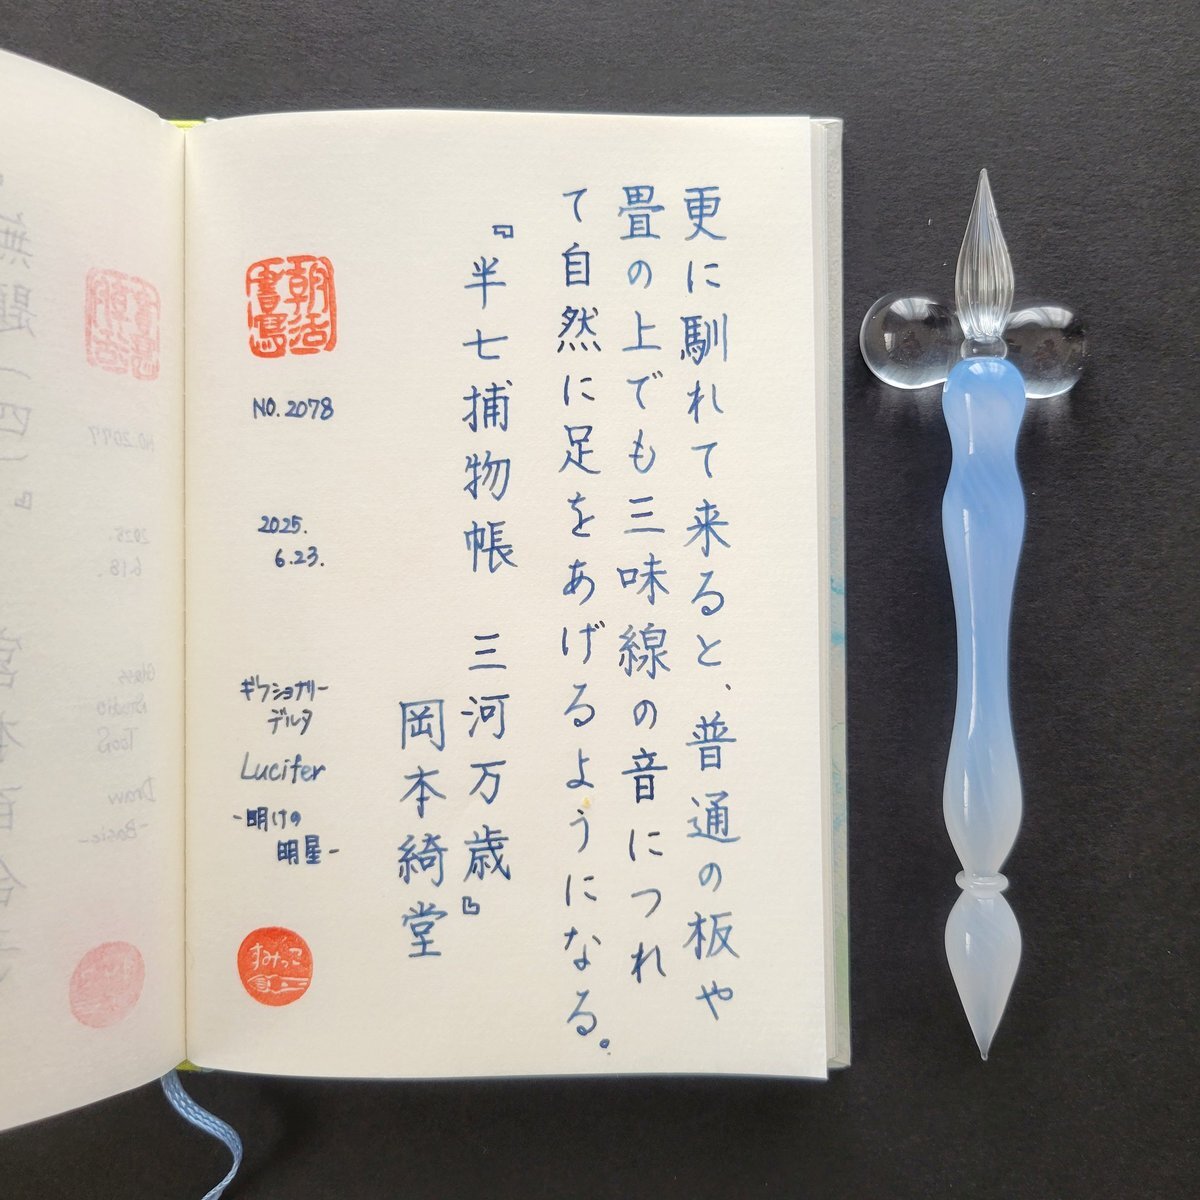 更に馴れて来ると、普通の板や
畳の上でも三味線の音につれ
て自然に足をあげるようになる。
『半七捕物帳 三河万歳』
岡本綺堂
朝活
書写
NO.2078
2025.
6.23.
ギクショナリー
デルタ
Lucifer
-明けの
明星-
すみっこ
無題(四)』
宮本百合子
朝活
書写
NO.2077
2025.
6.18.
Glass
Studio
TooS
Draw
-Basic-